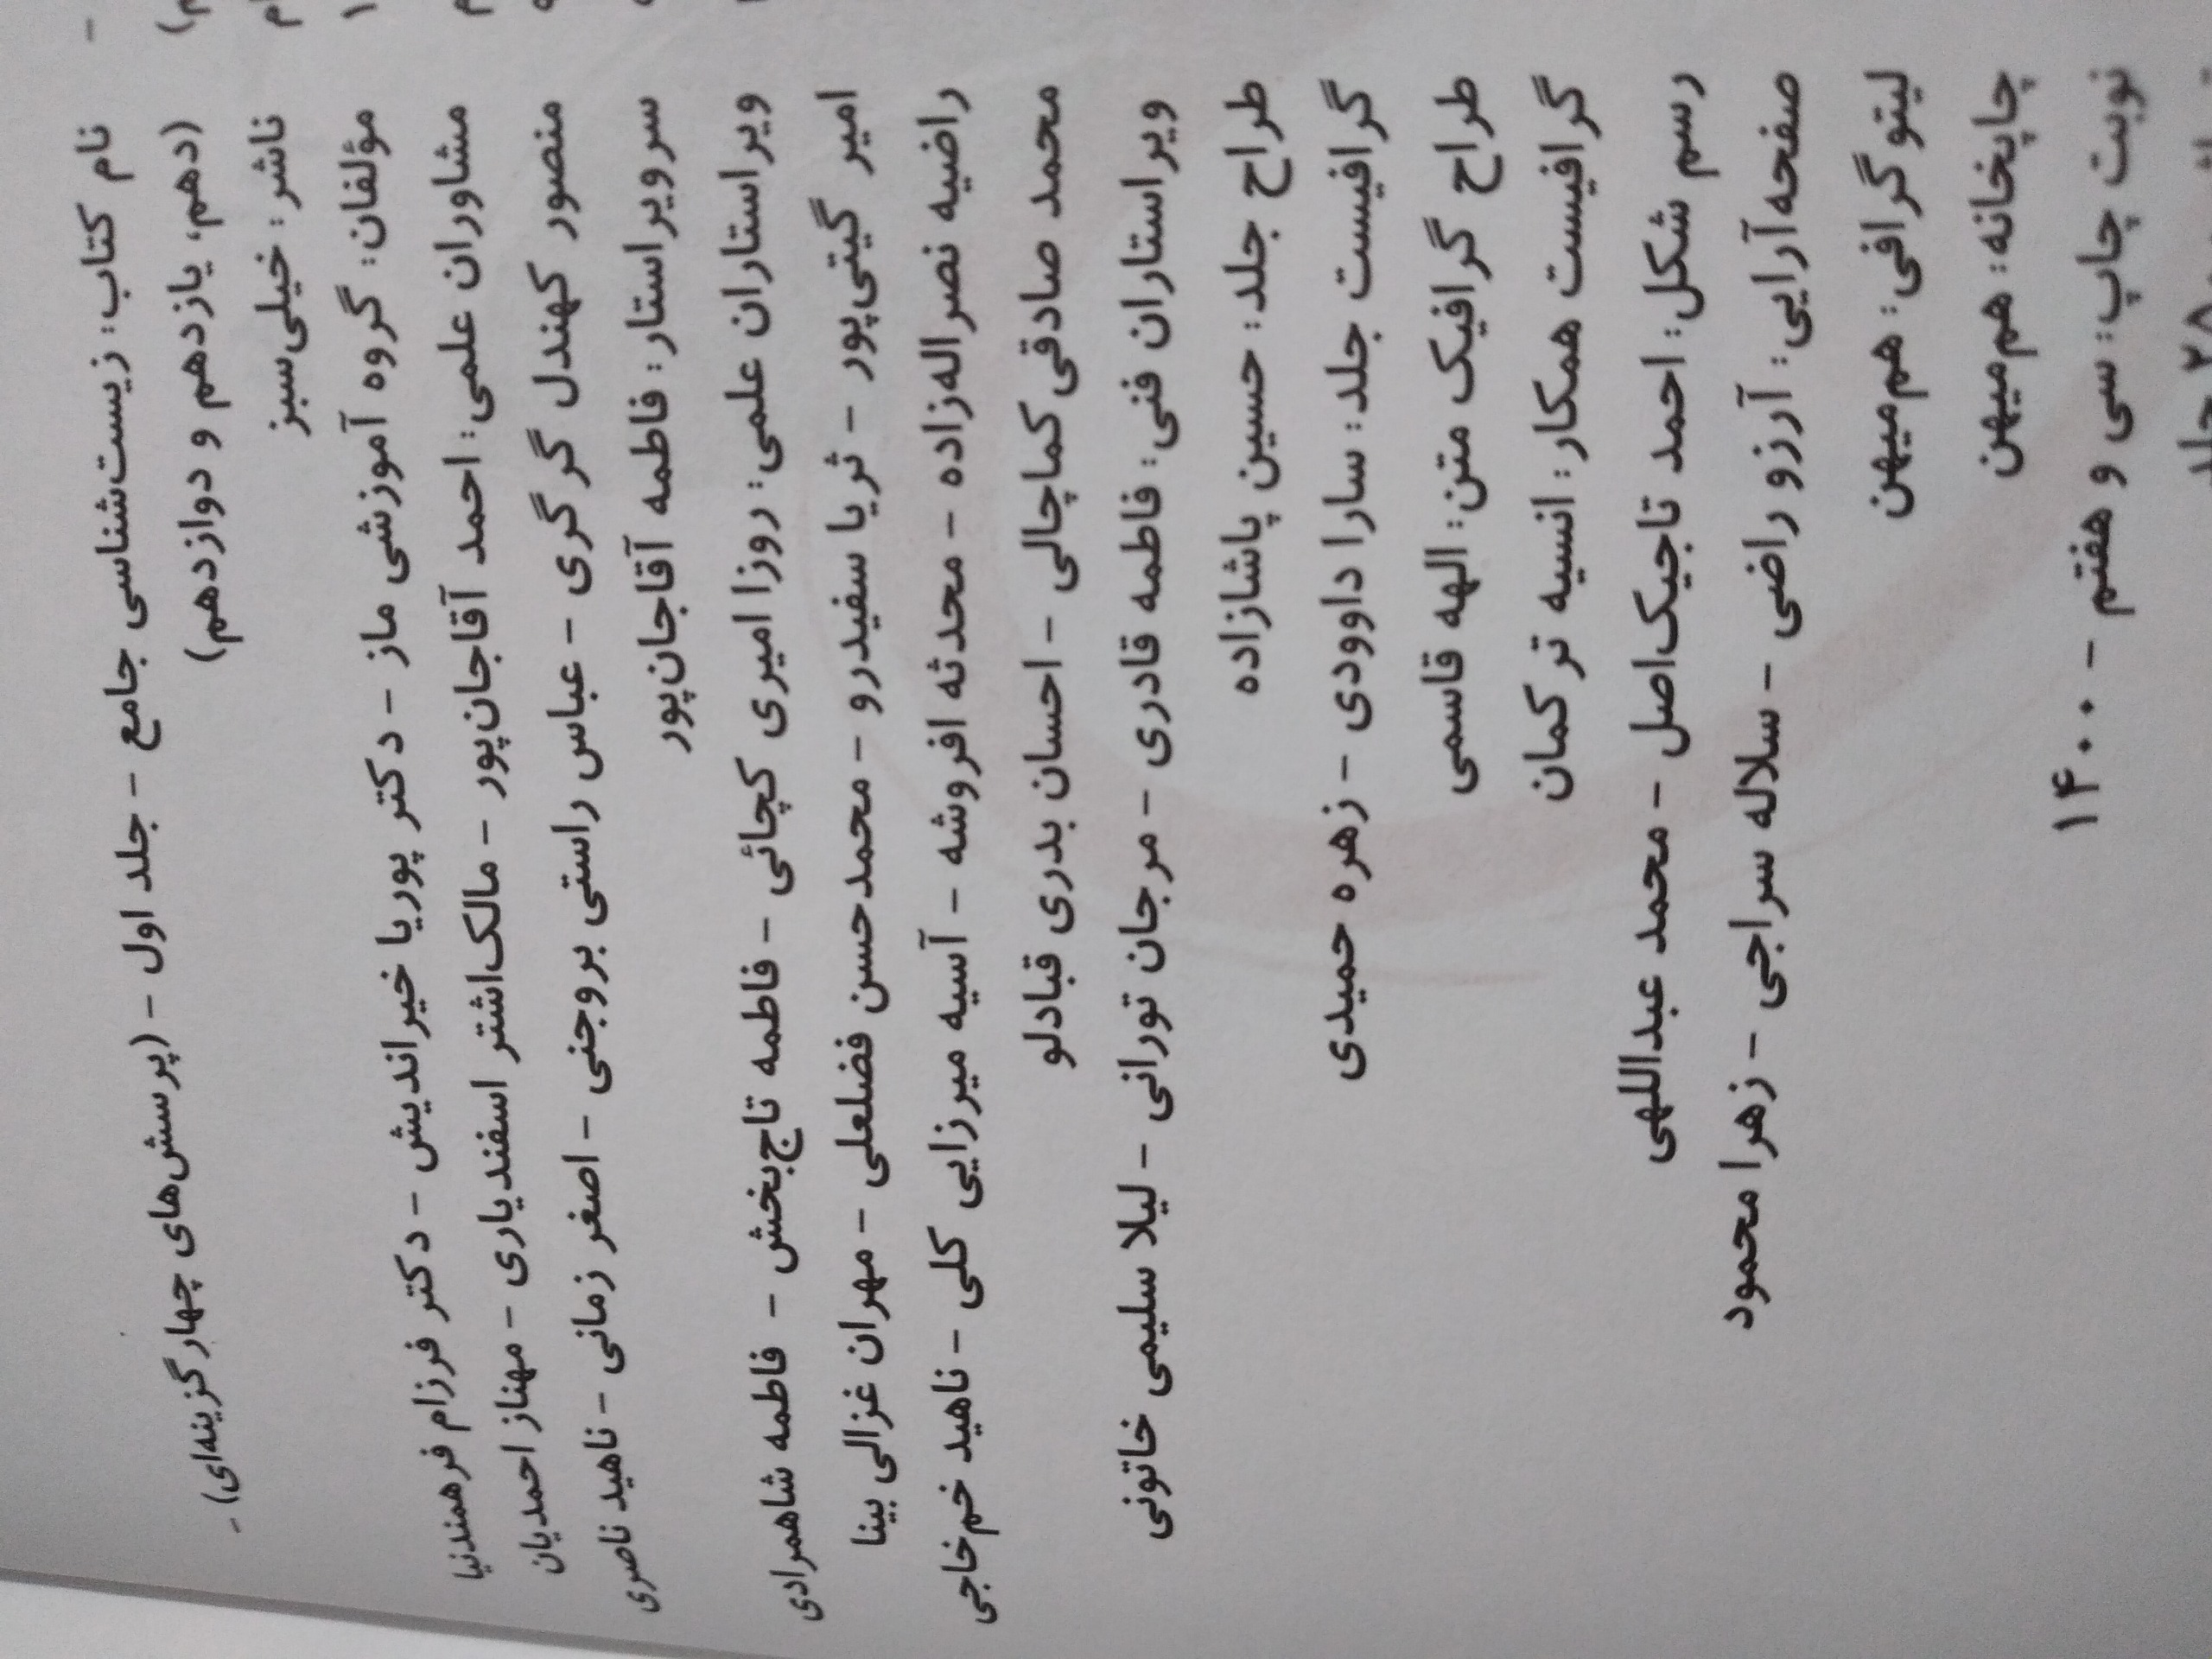 نام کتاب: زیست‌شناسی جامع - جلد اول - (پرسش‌های چهارگزینه‌ای) -
(دهم، یازدهم و دوازدهم)
ناشر: خیلی‌سبز
مؤلفان: گروه آموزشی ماز - دکتر پوریا خیراندیش - دکتر فرزام فرهمندنیا
مشاوران علمی: احمد آقاجان‌پور - مالک‌اشتر اسفندیاری - مهناز احمدیان
منصور کهندل گرگری - عباس راستی بروجنی - اصغر زمانی - ناهید ناصری
سرویراستار: فاطمه آقاجان‌پور
ویراستاران علمی: روزا امیری کچائی - فاطمه تاج‌بخش - فاطمه شاهمرادی
امیر گیتی‌پور - ثریا سفیدرو - محمدحسن فضلعلی - مهران غزالی بینا
راضیه نصراله‌زاده - محدثه افروشه - آسیه میرزایی کلی - ناهید خم‌خاجی
محمد صادقی کماچالی - احسان بدری قبادلو
ویراستاران فنی: فاطمه قادری - مرجان تورانی - لیلا سلیمی خاتونی
طراح جلد: حسین پاشازاده
گرافیست جلد: سارا داوودی - زهره حمیدی
طراح گرافیک متن: الهه قاسمی
گرافیست همکار: انسیه ترکمان
رسم شکل: احمد تاجیک‌اصل - محمد عبداللهی
صفحه‌آرایی: آرزو راضی - سلاله سراجی - زهرا محمود
لیتوگرافی: هم‌میهن
چاپخانه: هم‌میهن
نوبت چاپ: سی و هفتم - ۱۴۰۰